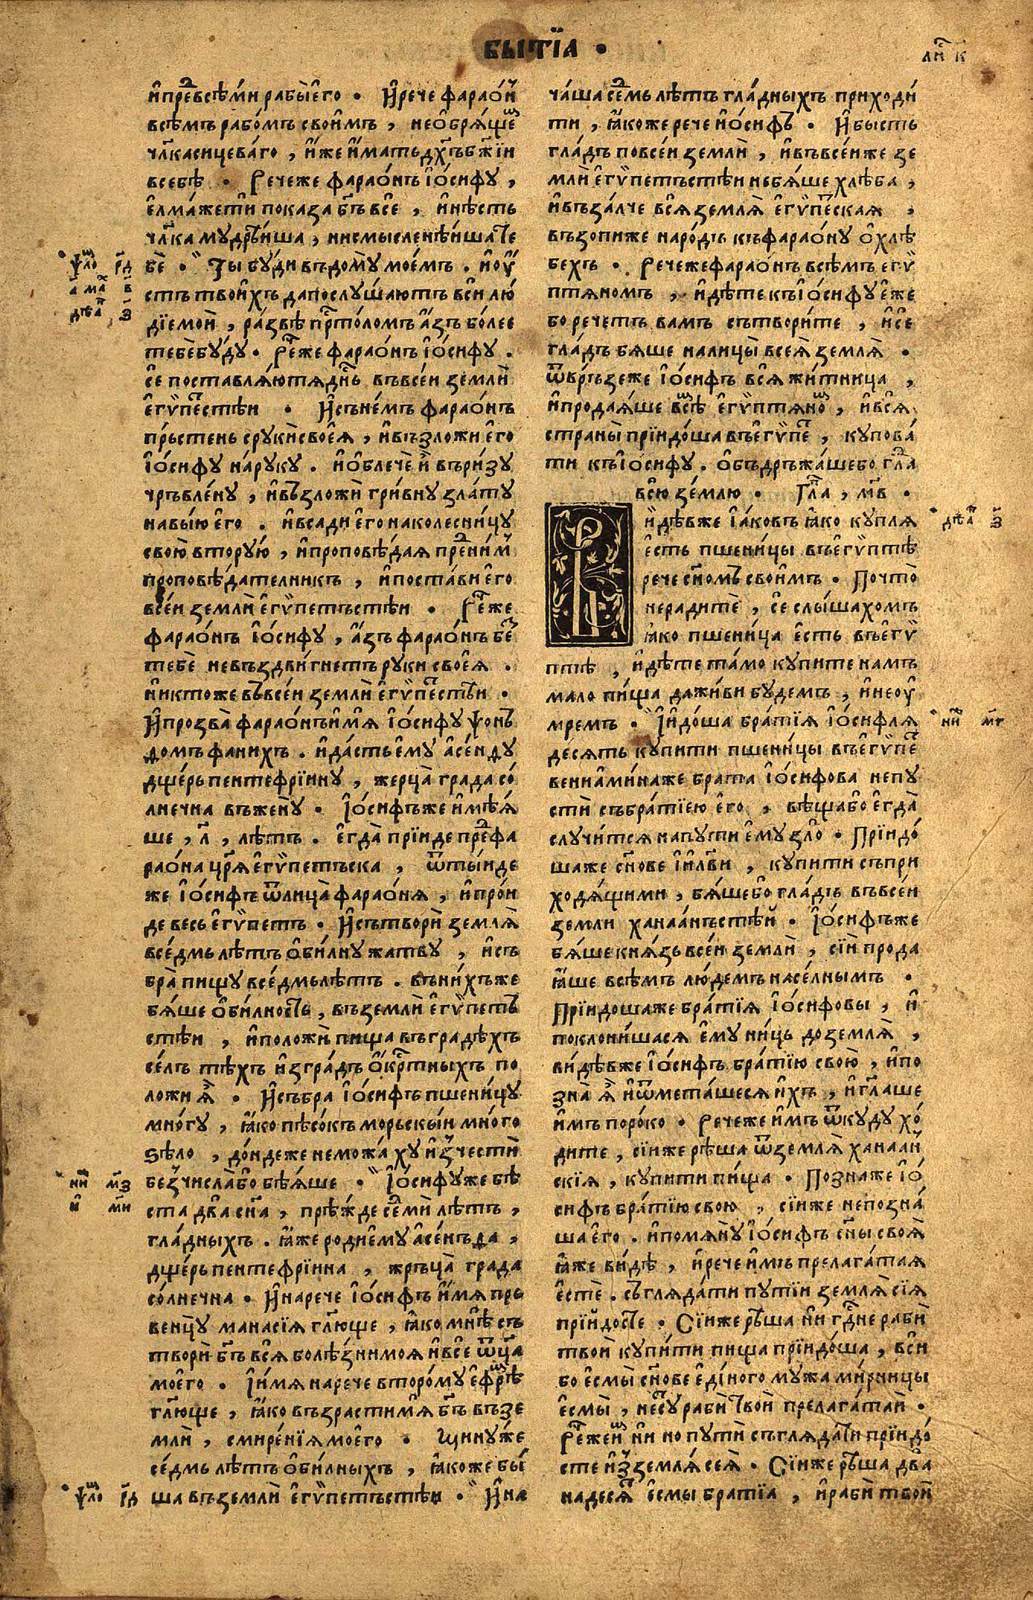 БЫТЇА •
ли҇ к
и҆пре҇всѣми рабы̀е҆го • И҆рече фарао́н
всѣмъ рабо́мъ свои́мъ , не ѡ҆брѧ́ще
чл҃ка сицева́го , и҆́же и҆́мать дх҃ъ бж҃їи
всебѣ̀ • Рече же фарао́нъ і҆о́сифу ,
е҆лма́же ти показа̀ бг҃ъ всѐ , и҆нѣ́сть
чл҃ка мудрѣ́иша , нисмысленѣ́иша те
бѐ • Ты бу́ди въ дому̀ мое́мъ . и҆оу҆
стъ твои́хъ да послу́шаютъ вси лю́
дїе мои̏ , ра́звѣ пр҇то́ломъ а҆́зъ бо́лее
тебѐ бу́ду • Ре҇же фарао́нъ і҆о́сифу .
се поставлѧ́ю тѧ дн҇ь въ все́и земли̏
е҆гѵ́пе҇стѣи • И҆снѣ́мъ фарао́нъ
пръ́стень с руки̏ своеѧ̀ , и҆възложи̏ е҆го̀
і҆о́сифу на́руку . и҆ѡблечѐ и҆̀ въ ри́зу
чръвле́ну , и҆възложи̏ гри́вну зла́ту
на вы́ю е҆го̀ . и҆всади̏ е҆го̀ на колесни́цу
свою̀ втору́ю , и҆проповѣ́даѧ пре҇ни́м
проповѣ́дателникъ , и҆поста́ви е҆го̀
все́и земли̏ е҆гѵ́петъстѣи • Ре҇же
фарао́нъ і҆о́сифу , а҆́зъ фарао́нъ бе҇
тебѐ не въздви́гнетъ руки̏ своеѧ̀ .
ни кто́же въ все́и земли̏ е҆гѵ́пе҇стъи •
И҆прозва̀ фарао́нъ и҆́мѧ і҆о́сифу ѱонъ
домъ фани́хъ . и҆да́сть е҆му̀ а҆сенду
дще́рь пентефрїину , жерца̀ гра́да со́
лнечна въ жену̀ • І҆о́сифъже и҆мѣ́ѧ
ше , л҃ , лѣ́тъ . е҆гда̀ прїи́де пре҇фа
рао́на цр҃ѧ̀ е҆гѵ́петъска , ѿты́и де
же і҆о́сифъ ѿлица̀ фарао́нѧ , и҆про́и
де весь е҆гѵ́петъ • И҆сътвори̏ землѧ̀
все́дмь лѣ́тъ ѡ҆били́у жа́тву , и҆съ
бра̀ пи́щу все́дмь лѣ́тъ . въ ни́хъ же
бѧ́ше ѡ҆били́ость , въ земли̏ е҆гѵ́петъ
стѣи , и҆положи̏ пи́ща въ гра́дѣхъ
се́лъ тѣ́хъ и҆зъ гра́дъ ѡ҆́кр҇тныхъ по
ложи̏ ѧ҆̀ • И҆събра̀ і҆о́сифъ пшени́цу
мно́гу , ꙗ҆́ко пѣсо́къ морьскы́и мно́го
ѕѣло̀ , до́ндеже не можа́ху и҆зче́сти
без числа̀ бо бѣ́ѧше • І҆о́сифу же бѣ́
ста два сн҃а , пре́жде се҇ми̏ лѣ́тъ ,
гла́дныхъ . ꙗ҆́же роди̏ е҆му̀ а҆сенъда ,
дще́рь пентефрїина , жръца̀ гра́да
со́лнечна • И҆нарече і҆о́сифъ и҆́мѧ пръ
венцу манасїѧ гл҃юще , ꙗ҆́ко мнѣ̀ съ
твори̏ бг҃ъ всѧ̀ болѣ́зни моѧ̀ и҆всѐ ѿц҃а
моего̀ • І҆и́мѧ нарече второ́му е҆фре҇
гл҃юще , ꙗ҆́ко възрасти́мѧ бг҃ъ въ зе
мли̏ , смире́нїѧ моего̀ • Мину́же
се́дмь лѣ́тъ ѡ҆би́лныхъ , ꙗ҆́коже бы̏
ша въ земли̏ е҆гѵ́петъстѣи • И҆на
ча́ша се҇мь лѣ́тъ гла́дныхъ приходи́
ти , ꙗ҆́коже рече и҆о́сифъ • И҆бысть
гла́дъ по все́и земли̏ , и҆въ все́и же зе
мли̏ е҆гѵ́петъстѣи не бѧ́ше хлѣ́ба ,
и҆възалче всѧ̀ землѧ̀ е҆гѵ́пе҇скаѧ ,
възопи́же наро́дъ къ фарао́ну ѡ҆ хлѣ
бехъ • Рече же фарао́нъ всѣ́мъ е҆гѵ́
птѧномъ , и҆дѣ́те къ і҆о́сифу е҆́же
бо рече́тъ вамъ сътвори́те , и҆се
гла́дъ бѧ́ше на лицы̀ всеѧ̀ землѧ̀ •
ѿвръ́зе же і҆о́сифъ всѧ̀ жи́тница ,
и҆продаѧ́ше все҇ е҆гѵ́птѧно҇ , и҆всѧ̀
страны̀ прїидо́ша въ е҆гѵ́пе҇ , купова́
ти къ і҆о́сифу . ѡ҆бъдръжа́ше бо гла҇
всю̀ зе́млю • Гла҇ , м҃в •
и҆дѣ́вже і҆а́ковъ ꙗ҆́ко купля
е҆сть пшени́цы въ е҆гѵ́птѣ
рече сн҃омъ свои́мъ • Почто̀
нерадите̏ , се слы́шахомъ
ꙗ҆́ко пшени́ца е҆сть въ е҆гѵ́
птѣ , и҆дѣ́те та́мо купи́те намъ
мало пи́ща да жи́ви бу́демъ , и҆не оу҆́
мремъ • І҆идо́ша бра́тїѧ і҆о́сифлѧ
де́сѧть купи́ти пшени́цы въ е҆гѵ́пе҇
венїами́на же бра́та і҆о́сифова не пу
сти̏ съ бра́тїею е҆го̀ , вѣща̀ бо е҆гда̀
случи́тсѧ на пути̏ е҆му̀ зло̀ • Прїидо́
ша же сн҃ове і҆и҃лви , купи́ти съ при
ходѧ́щими , бѧ́ше бо гла́дъ въ все́и
земли̏ ханаа́нъстѣй • І҆о́сифъже
бѧ́ше кнѧ́зь все́и земли̏ , сїи̏ прода
ꙗ҆ше всѣ́мъ лю́демъ насе́лнымъ •
Прїидо́ша же бра́тїѧ і҆о́сифовы , и҆
поклони́шасѧ е҆му̀ ни́ць до землѧ̀ ,
ви́дѣвже і҆о́сифъ бра́тїю свою̀ , и҆по
зна̀ ѧ҆̀ и҆ѡмета́шесѧ и҆́хъ , и҆гл҃аше
и҆́мъ поро́ко • Рече же и҆́мъ ѿкуду хо́
дите , сїи́же рѣ́ша ѿ землѧ̀ ханаа́н
скїѧ , купи́ти пи́ща • Позна́же і҆о́
сифъ бра́тїю свою̀ , сїи́же не позна́
ша е҆го̀ . и҆помѧну̀ і҆о́сифъ сн҃ы своѧ̀
ꙗ҆́же ви́дѣ , и҆рече и҆́мъ прелага́таѧ
е҆сте . съглѧ́дати пути̏и землѧ̀ сїѧ̀
прїидо́сте • Сїи́же рѣ́ша ни гд҇не раби̏
твои̏ купи́ти пи́ща прїидо́ша , вси
бо е҆смы̀ сн҃ове е҆ди́ного му́жа ми́рницы
е҆смы̀ , не су́ раби̏ твои̏ прелага́таи •
Ре҇же и҆́м ни но пути̏ съглѧ́дати прїидо́
сте и҆з землѧ̀ сеѧ̀ • Сїи́же рѣ́ша два
надесѧ҇ е҆смы̀ бра́тїа , и҆раби̏ твои̏